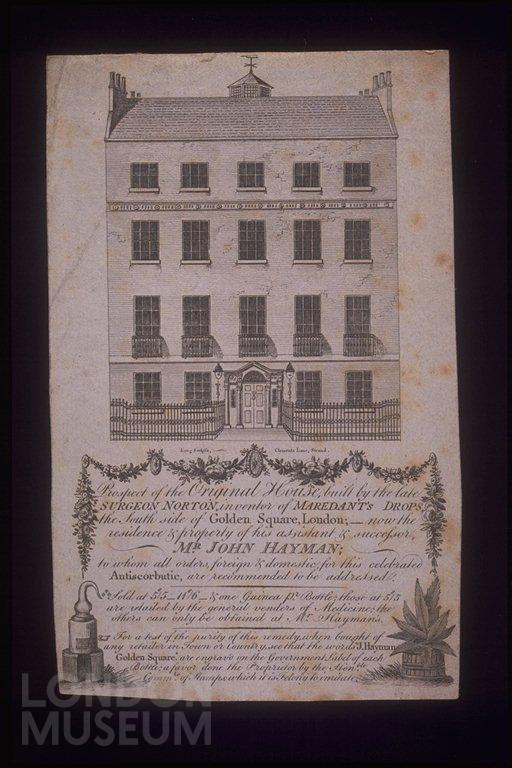 Long Sculpsit,
Clements Lane, Strand.
Prospect of the Original House, built by the late
SURGEON NORTON, inventor of MAREDANT'S DROPS,
the South side of Golden Square, London; — now the
residence & property of his assistant & successor,
MR. JOHN HAYMAN;
to whom all orders, foreign & domestic, for this celebrated
Antiscorbutic, are recommended to be addressed.
Sold at 5s/5 – 11s/6 – & one Guinea pr. Bottle; those at 5s/5
are retailed by the general venders of Medicine; the
others can only be obtained at Mr. Hayman's.
For a test of the purity of this remedy, when bought of
any retailer in Town or Country, see that the words "J. Hayman
Golden Square" are engravd on the Government Label of each
Bottle; a favor done the Proprietor by the Honble.
Commrs. of Stamps, which it is Felony to imitate.
LONDON
MUSEUM